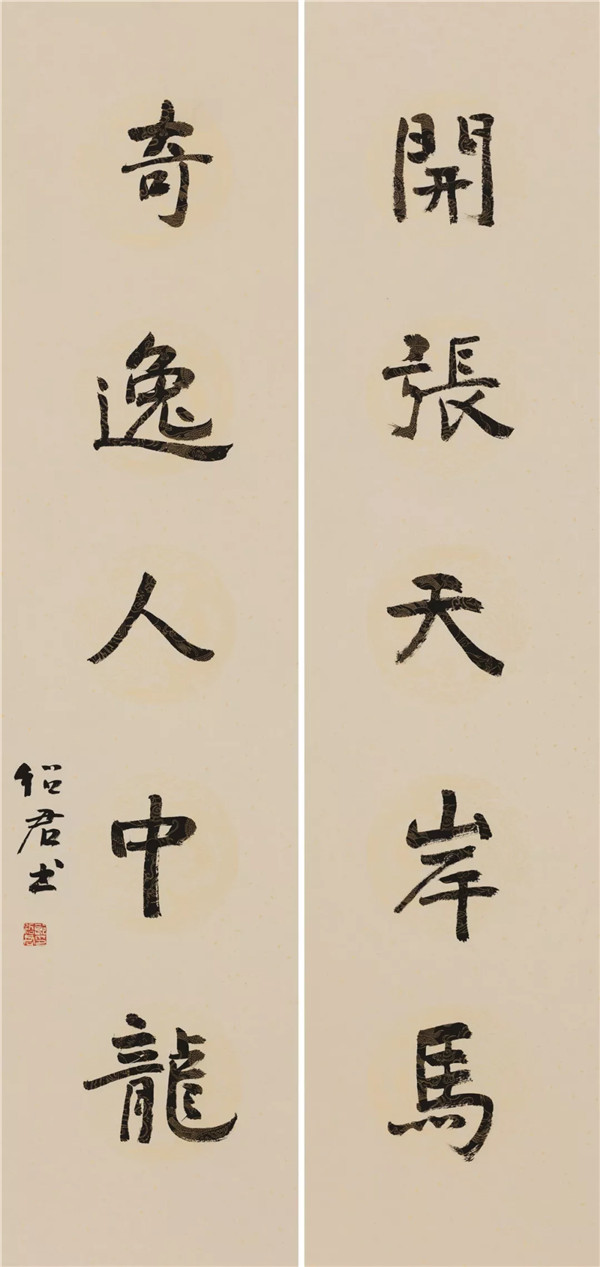 開張天岸馬
奇逸人中龍
紹君书